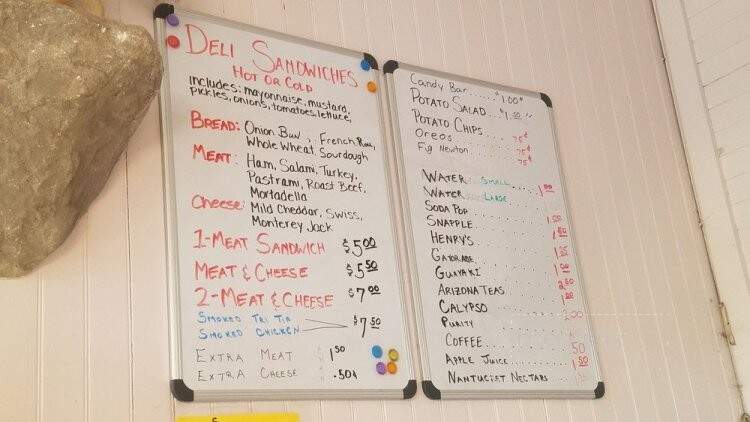 DELI SANDWICHES
HOT OR COLD
includes: mayonnaise, mustard,
pickles, onions, tomatoes, lettuce,
BREAD: Onion Bun, French Roll,
Whole Wheat Sourdough
MEAT: Ham, Salami, Turkey,
Pastrami, Roast Beef,
Mortadella
Cheese: Mild Cheddar, Swiss,
Monterey Jack
1-MEAT SANDWICH $5.00
MEAT & CHEESE $5.50
2-MEAT & CHEESE $7.00
SMOKED TRI TIP
SMOKED CHICKEN $7.50
EXTRA MEAT 1.50
EXTRA CHEESE .50¢
Candy Bar..... $1.00
POTATO SALAD $1.50
POTATO CHIPS 75¢
Oreos 75¢
Fig Newton 75¢
WATER SMALL 1.00
WATER LARGE
SODA POP
SNAPPLE
HENRY'S
GATORADE
GUAYAKI
ARIZONA TEAS
CALYPSO
PURITY
COFFEE
APPLE JUICE
NANTUCKET NECTARS